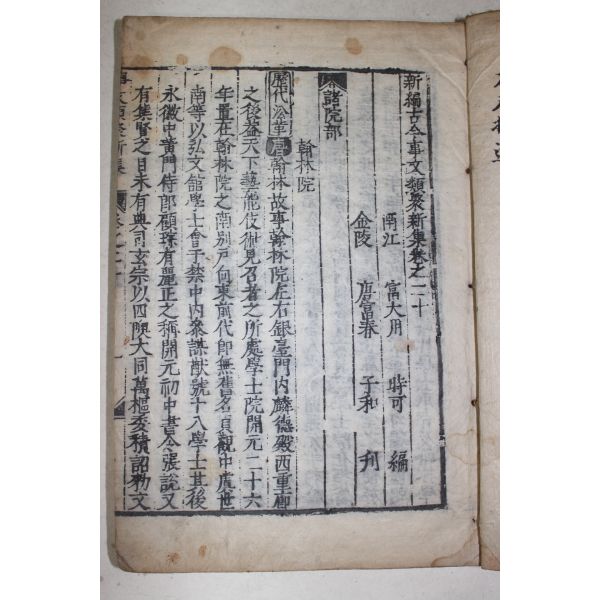 新編古今事文類聚新集卷之二十
南江 富大用 時可 編
金陵 唐富春 子和 刋
諸院部
翰林院
歷代沿革 唐翰林故事翰林院在右銀臺門內麟德殿西重廊
之後蓋天下藝能伎術見召者之所處學士院開元二十六
年置在翰林院之南別戶向東前代即無舊名貞觀中虞世
南等以弘文館學士會于禁中內參謀猷號十八學士其後
永徽中黃門侍郎顧琮有麗正之稱開元初中書令張說又
有集賢之目未有典司玄宗以四隩大同萬樞委積詔勑文
事文類聚新集 卷之二十